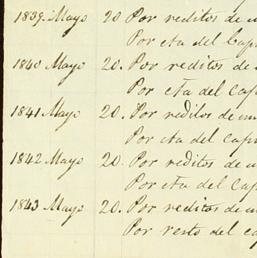 1839. Mayo 20 Por reditos de u
Por cta del Cap
1840 Mayo 20. Por reditos de
Por cta del Cap
1841 Mayo 20. Por reditos de un
Por cta del Capi
1842 Mayo 20. Por reditos de u
Por cta del Cap
1843 Mayo 20. Por reditos de un
Por resto del ca